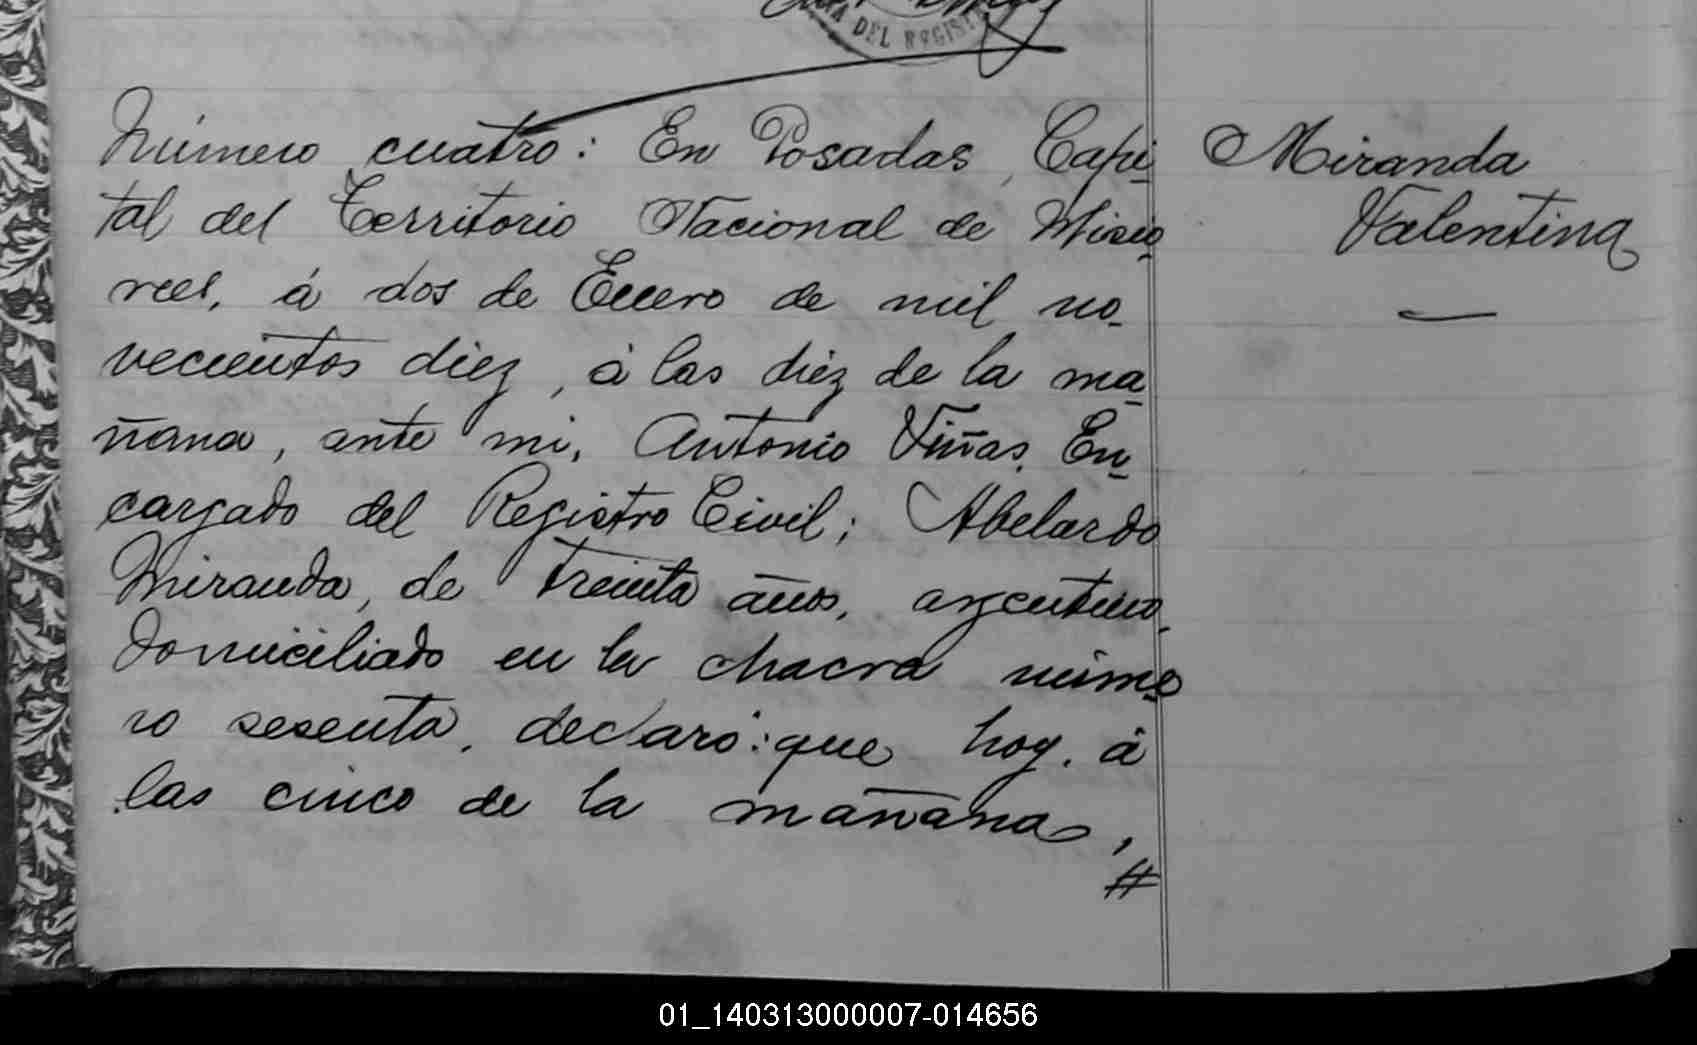 DEL REGIST
Número cuatro: En Posadas, Capi-
tal del Territorio Nacional de Misio-
nes, á dos de Enero de mil no-
vecientos diez, á las diez de la ma-
ñana, ante mi, Antonio Viñas, En-
cargado del Registro Civil; Abelardo
Miranda, de treinta años, argentino,
domiciliado en la chacra núme-
ro sesenta, declaró: que hoy, á
las cinco de la mañana,
#
Miranda
Valentina
01_140313000007-014656